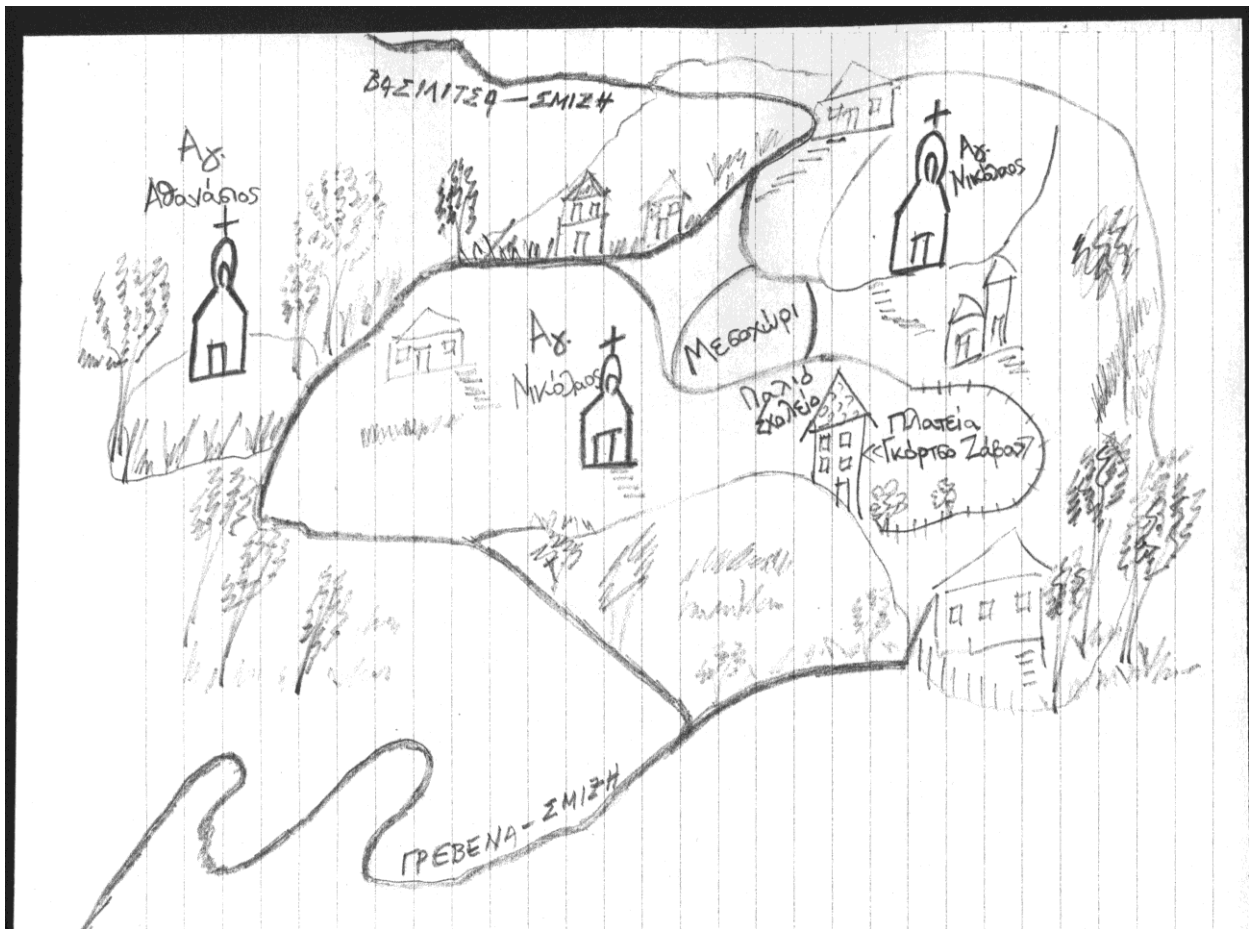 ΒΑΣΙΛΙΤΣΑ - ΣΜΙΞΗ
Αγ.
Αθανάσιος
Αγ.
Νικόλαος
Αγ.
Νικόλαος
Μεσοχώρι
Παλιό
σχολείο
Πλατεία
«Γκόρτσο Ζάβαυ»
ΓΡΕΒΕΝΑ - ΣΜΙΞΗ